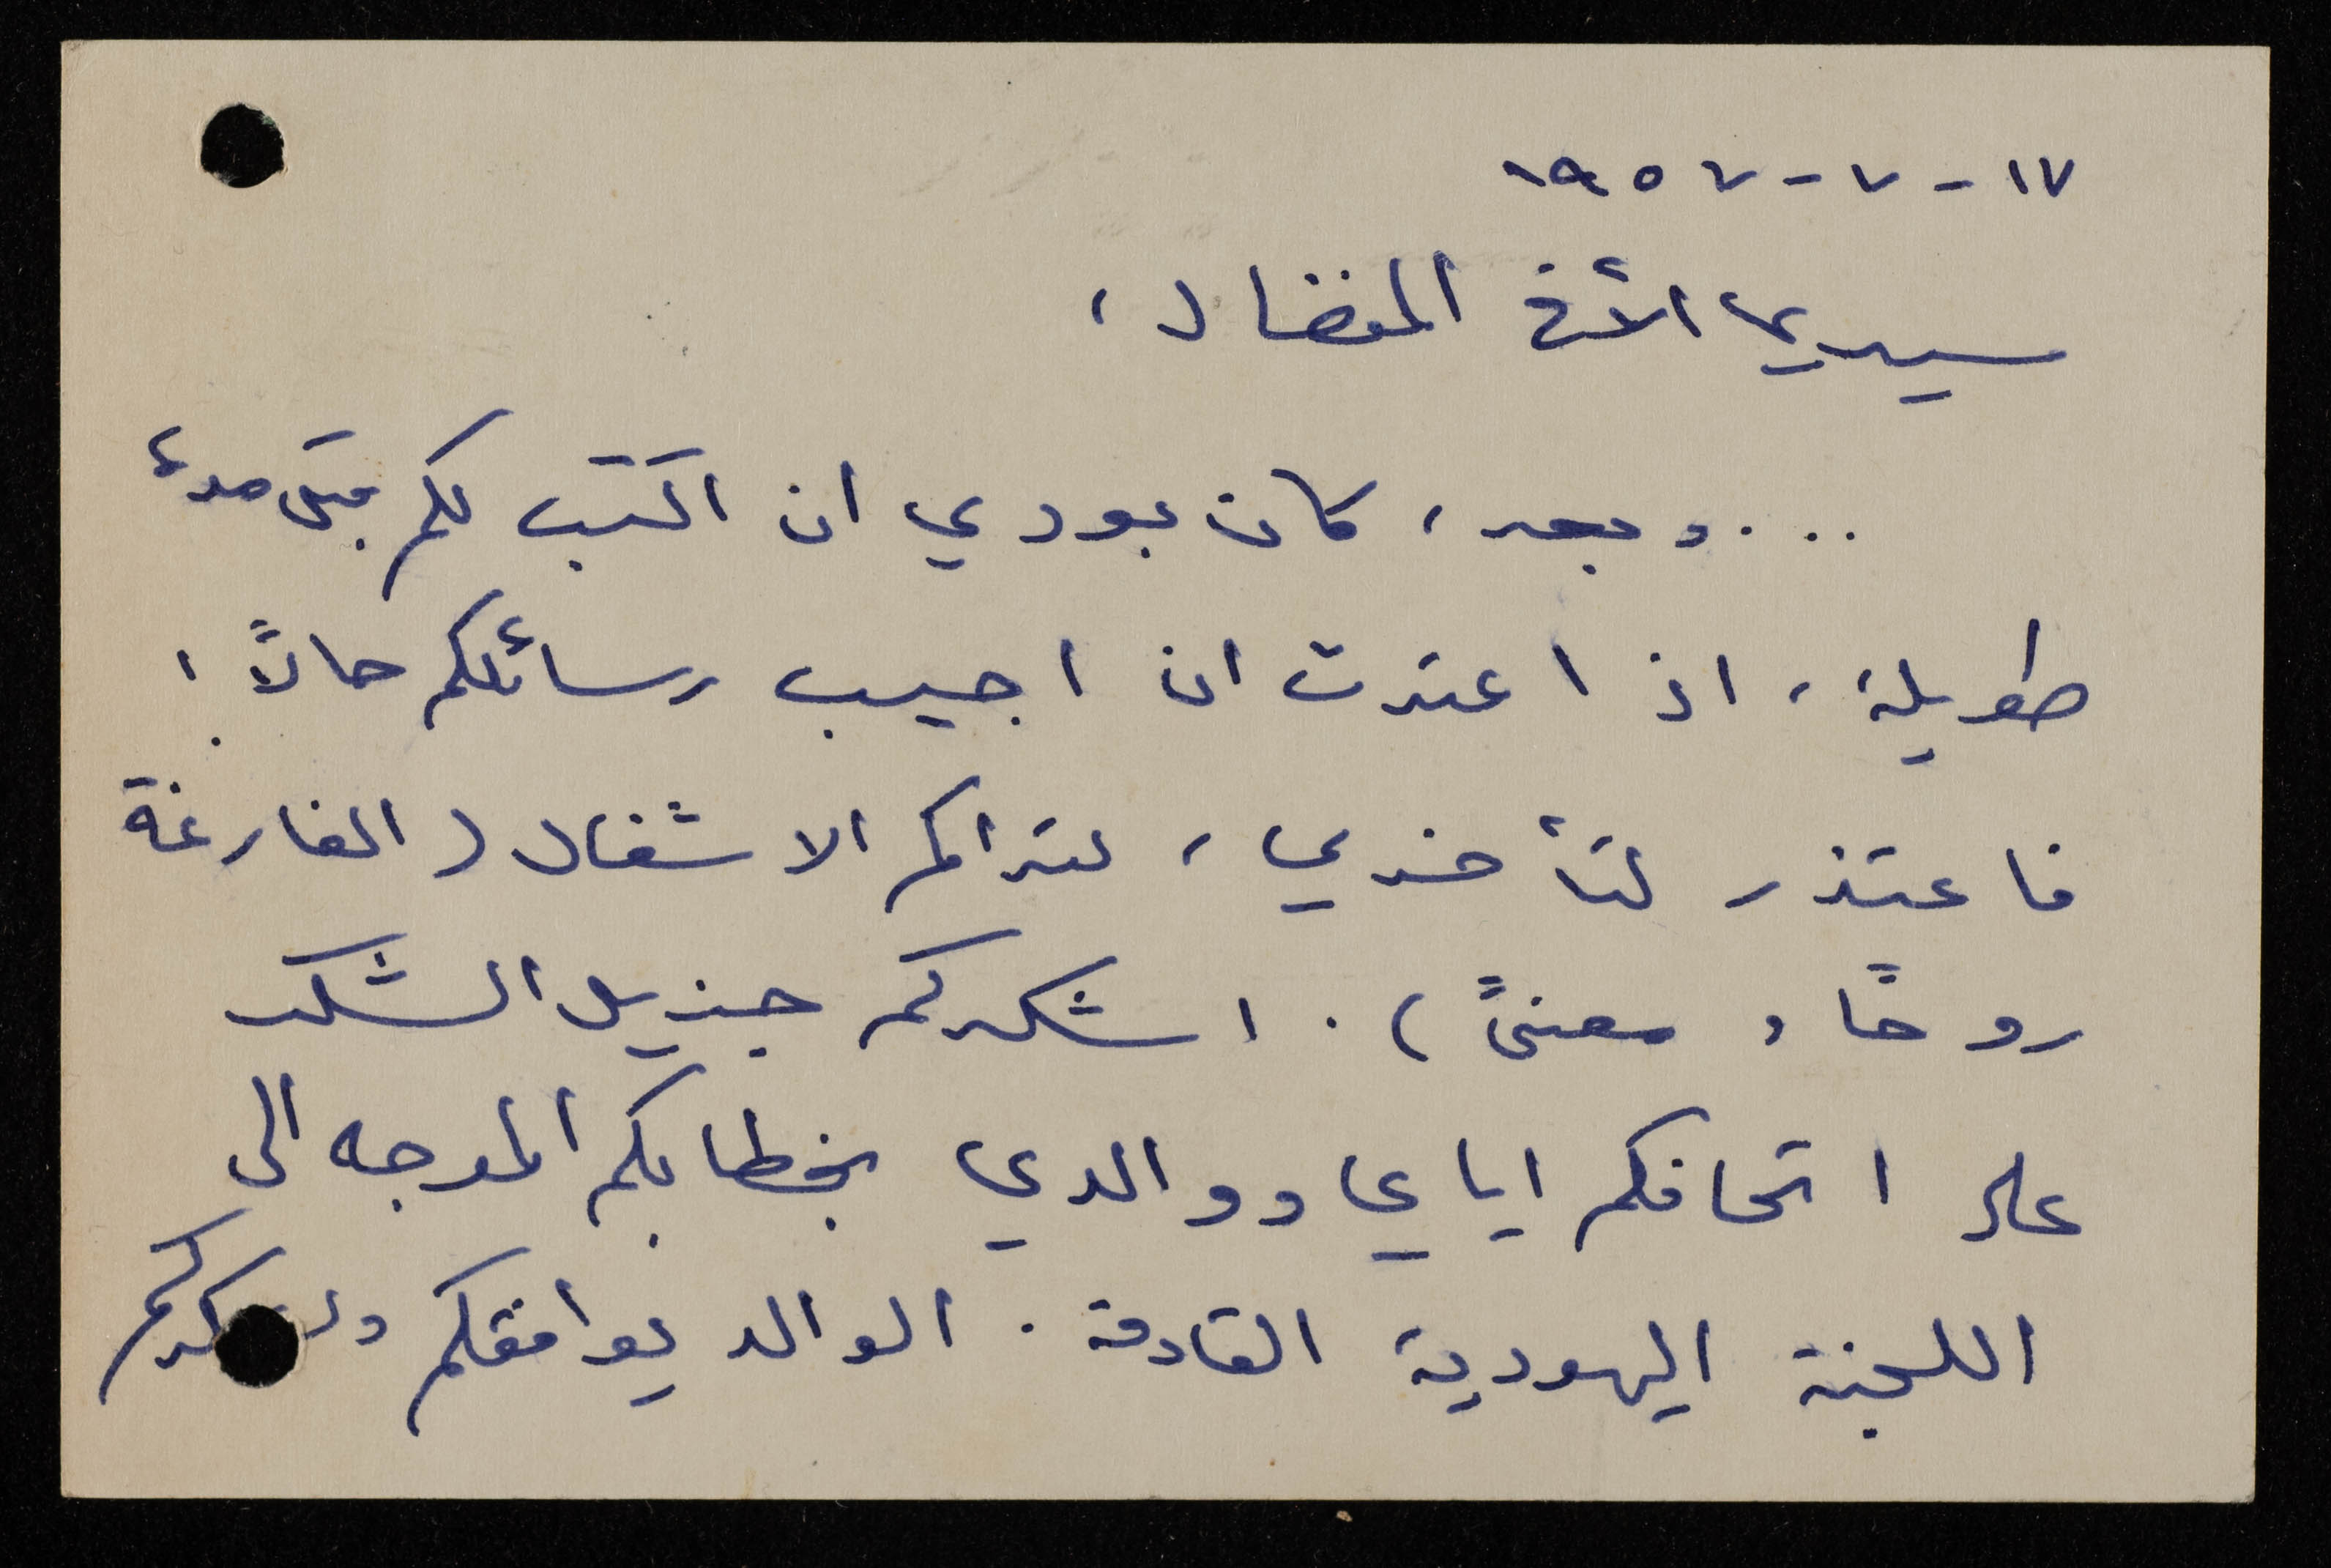 ١٧-٧-١٩٥٧
سيدي الأخ المفضال،
...وبعد، كان بودي ان اكتب لكم قبل مدة
طويلة، اذ اعتدت ان اجيب رسائلكم حالاً،
فاعتذر لتأخري، لتراكم الاشغال (الفارغة
روحًا ومعنىً). اشكركم جزيل الشكر
على اتحافكم اياي ووالدي بخطابكم الموجه الى
اللجنة اليهودية القادمة. الوالد يوافقكم